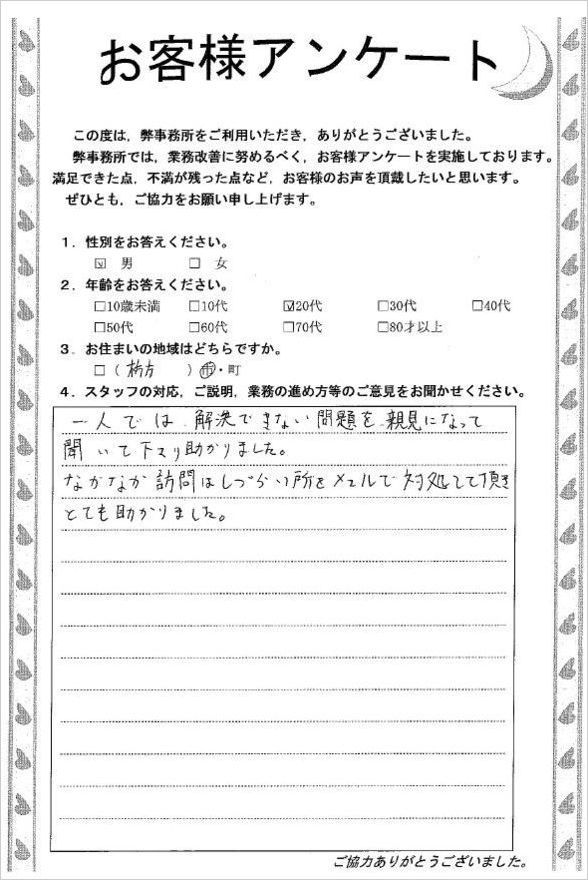 お客様アンケート
この度は，弊事務所をご利用いただき，ありがとうございました。
弊事務所では，業務改善に努めるべく，お客様アンケートを実施しております。
満足できた点，不満が残った点など，お客様のお声を頂戴したいと思います。
ぜひとも，ご協力をお願い申し上げます。
１．性別をお答えください。
☑ 男 □ 女
２．年齢をお答えください。
□10歳未満 □10代 ☑20代 □30代 □40代
□50代 □60代 □70代 □80才以上
３．お住まいの地域はどちらですか。
□（ 枚方 ）市・町
４．スタッフの対応，ご説明，業務の進め方等のご意見をお聞かせください。
一人では解決できない問題を親見になって
聞いて下さり助かりました。
なかなか訪問はしづらい所をメールで対処して頂き
とても助かりました。
ご協力ありがとうございました。